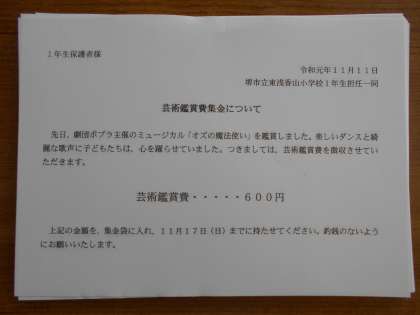 １年生保護者様
令和元年１１月１１日
堺市立東浅香山小学校１年生担任一同
芸術鑑賞費集金について
先日、劇団ポプラ主催のミュージカル「オズの魔法使い」を鑑賞しました。楽しいダンスと綺
麗な歌声に子どもたちは、心を躍らせていました。つきましては、芸術鑑賞費を徴収させてい
ただきます。
芸術鑑賞費・・・・・６００円
上記の金額を、集金袋に入れ、１１月１７日（日）までに持たせてください。釣銭のないよう
にお願いいたします。